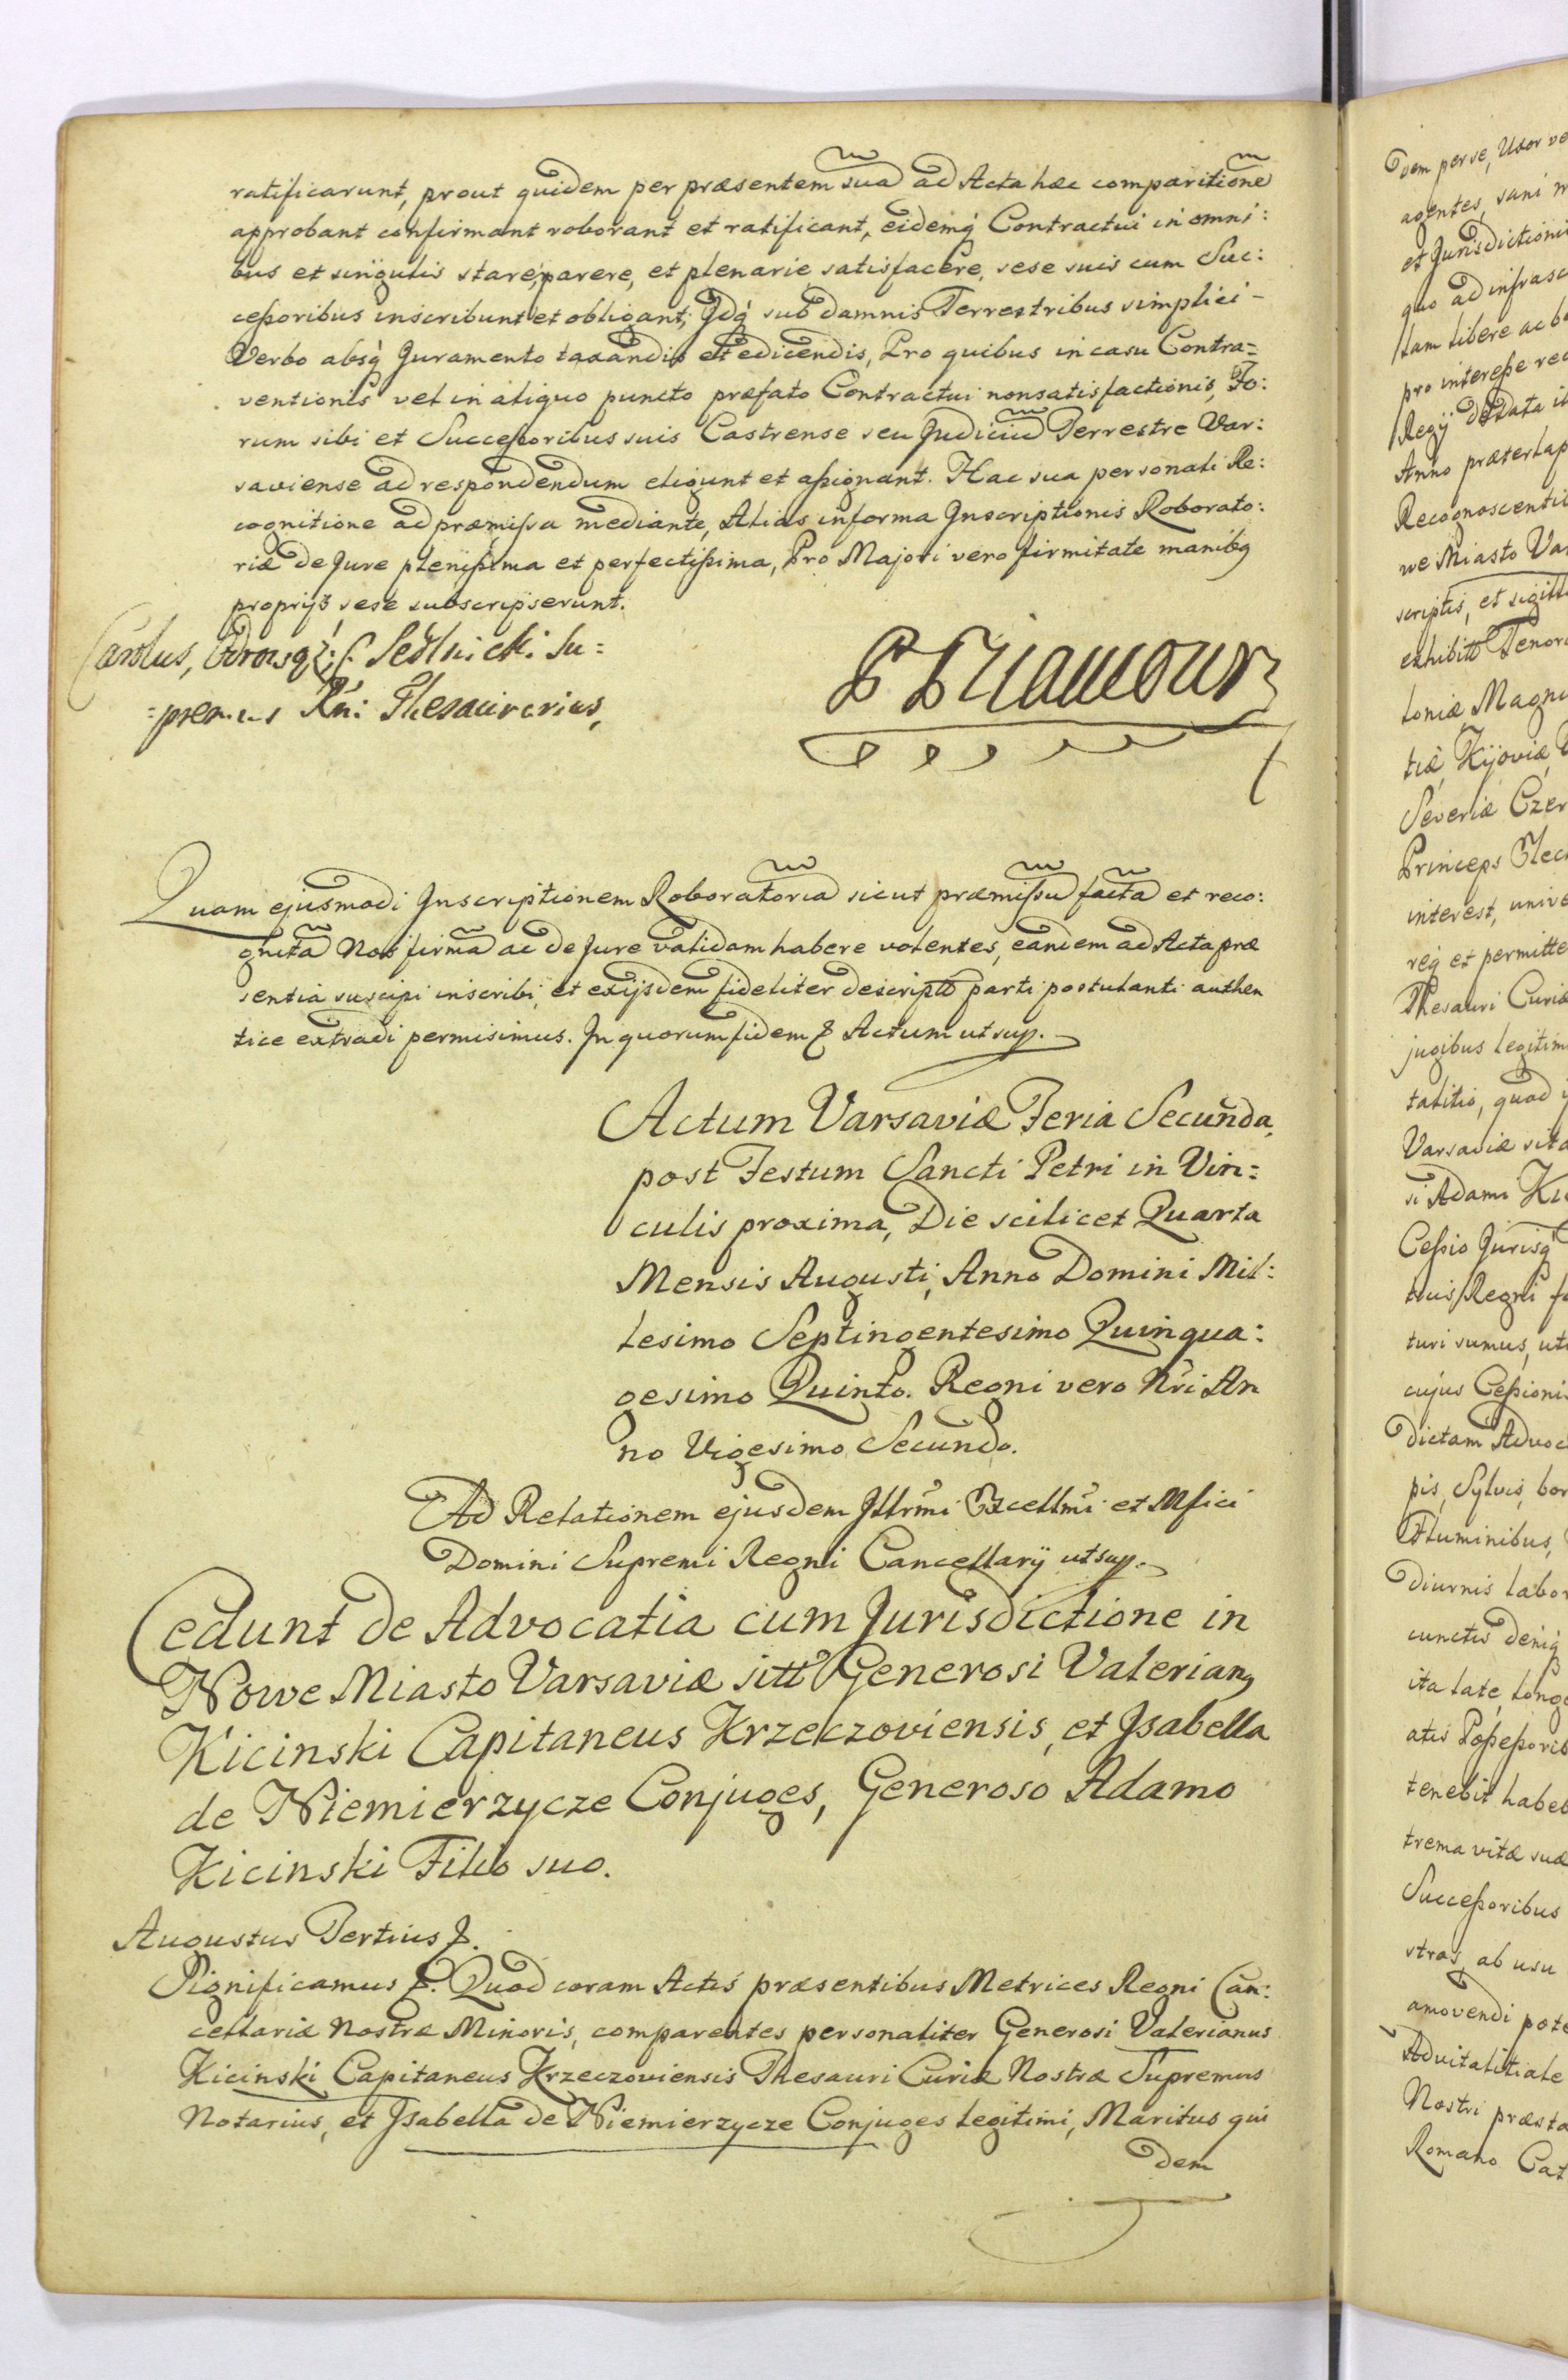 ratificarunt, prout quidem per præsentem suã ad Acta hæc comparitionẽ
approbant confirmant roborant et ratificant, eidemq̀ Contractui in omni:
bus et singulis stare, parere, et plenarie satisfacere, sese suis cum Suc:
ceßoribus inscribunt et obligant; Jdq̀ sub damnis Terrestribus simplici-
Verbo absq̀ Juramento taxandis et edicendis, Pro quibus in casu Contra=
ventionis vel in aliquo puncto præfato Contractui non satisfactionis, Fo:
rum sibi et Succeßoribus suis Castrense seu Judiciũ Terrestre Var:
saviense ad respondendum eligunt et aßignant. Hac sua personali Re:
cognitione ad præmißa mediante, Alias in forma Jnscriptionis Roborato:
riæ de Jure plenißima et perfectißima, Pro Majori vero firmitate manibq
proprijs sese subscripserunt.
Carolus, Sedlnicki Su=
=premus Rñi Thesaurarius,
Quam ejusmodi Jnscriptionem Roboratoriã sicut præmißũ factã et reco:
gnitã Nos firmã ac de Jure validam habere volentes, eandem ad Acta præ
sentia suscipi inscribi, et exijsdem fideliter descriptã parti postulanti authen
tice extradi permisimus. Jn quorum fidem &. Actum ut sup.
Actum Varsaviæ Feria Secunda,
post Festum Sancti Petri in Vin=
culis proxima, Die scilicet Quarta
Mensis Augusti, Anno Domini Mil:
lesimo Septingentesimo Quinqua:
gesimo Quinto. Regni vero Nr̃i An
no Vigesimo Secundo.
Ad Relationem ejusdem Jllrm̃i Excellm̃i et Mfici
Domini Supremi Regni Cancellarij ut sup.
Cedunt de Advocatia cum Jurisdictione in
Nowe Miasto Varsaviæ sitt Generosi Valerianq
Kicinski Capitaneus Krzeczoviensis, et Jsabella
de Niemierzycze Conjuges, Generoso Adamo
Kicinski Filio suo.
Augustus Tertius &.
Significamus &. Quod coram Actis præsentibus Metrices Regni Can:
cellariæ Nostræ Minoris, comparentes personaliter Generosi Valerianus
Kicinski Capitaneus Krzeczoviensis Thesauri Curiæ Nostræ Supremus
Notarius, et Jsabella de Niemierzycze Conjuges legitimi, Maritus qui
dem
dem per se, Uxor ve
agentes, sani
et Jurisdictioni
quo ad infrasc
tam libere ac be
pro intereße re
Regij
Anno præterlap
Recognoscenti
we Miasto Va
scriptis, et sigill
exhibitt Tenor
loniæ, Magn
tiæ, Kijoviæ,
Severiæ Czer
Princeps Elec
interest, unive
req̀ et permitte
Thesauri Curiæ
jugibus legitim
talitio, quod
Varsaviæ sita
si Adami Ki
Ceßio Jurisq̀
tuis Regni
turi sumus, uti
cujus Ceßioni
dictam Advoc
pis, Sylvis, bor
Fluminibus,
diurnis labor
cunctis deniq̀
ita late, longe
atis Poßeßorib
tenebit habeb
trema vitæ suæ
Succeßoribus
stras, ab usu
amovendi pote
Advitalitiale
Nostri præsta
Romano Cat